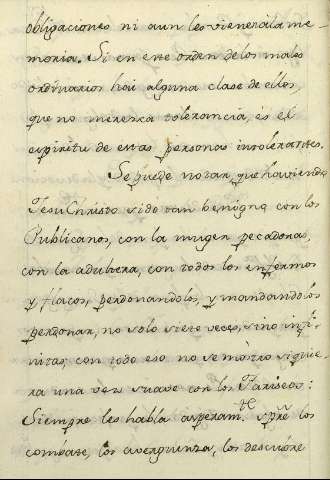 obligaciones ni aun les vienen à la me-
moria. Si en este orden de los males
ordinarios hai alguna clase de ellos,
que no merezca tolerancia, es el
espiritu de estas personas intolerantes.
Se puede notar, que haviendo
Jesu Christo sido tan benigno con los
Publicanos, con la muger pecadora,
con la adultera, con todos los enfermos
y flacos, perdonandolos, y mandandolos
perdonar, no solo siete veces, sino infi-
nitas; con todo eso no se mostró siquie-
ra una vez suave con los Fariseos:
Siempre les habla asperam.te spre los
combate, los averguenza, los descubre